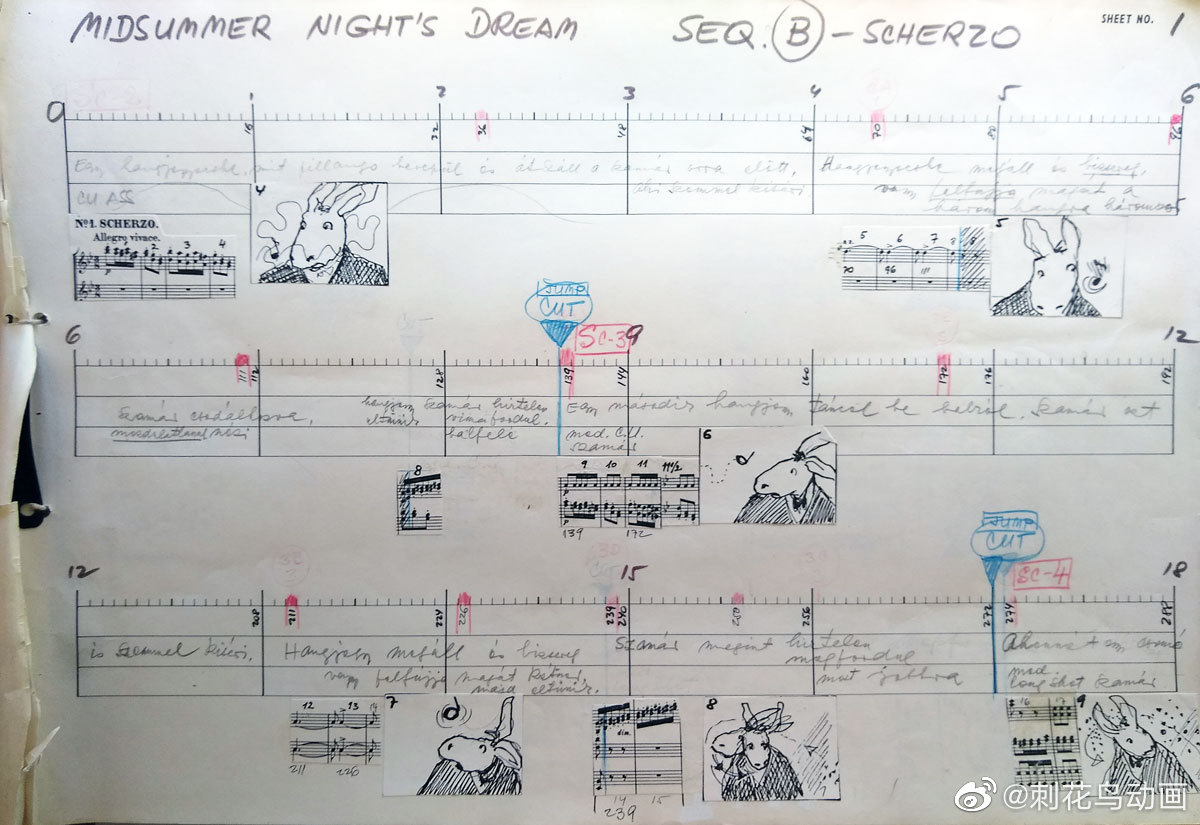 MIDSUMMER NIGHT'S DREAM SEQ. B - SCHERZO
SHEET NO. 1
SC-2
0 1 2 3 4 5 6
16 32 36 48 64 70 80 86
Egy hangjegyecske, mint pillangó berepül és átszáll a szamár orra előtt, Hangjegyecske megáll és
CU ASS szemmel kíséri vagy felfújja magát a
három hangra háromszor
4
Nº1. SCHERZO.
Allegro vivace.
2 3 4
5 6 7 8
70 96 111
5
JUMP
CUT
SC-3
6 9 12
111 112 128 139 144 160 172 176 192
Szamár csodálkozva, hangjegy Szamár hirtelen Egy második hangjegy táncol be balról. Szamár ezt
mozdulatlanul nézi eltűnik visszafordul balfelé med. C.U.
szamár
8
9 10 11 11½
139 172
6
JUMP
CUT
SC-4
12 15 18
208 211 224 226 239 240 250 256 272 274 288
is szemmel kíséri. Hangjegy megáll és Szamár megint hirtelen
vagy felfújja magát kétszer, megfordul
majd eltűnik. most jobbra
med.
long shot szamár
12 13 14
211 226
7
dim.
14 15
239
8
16 17
9
@刺花鸟动画